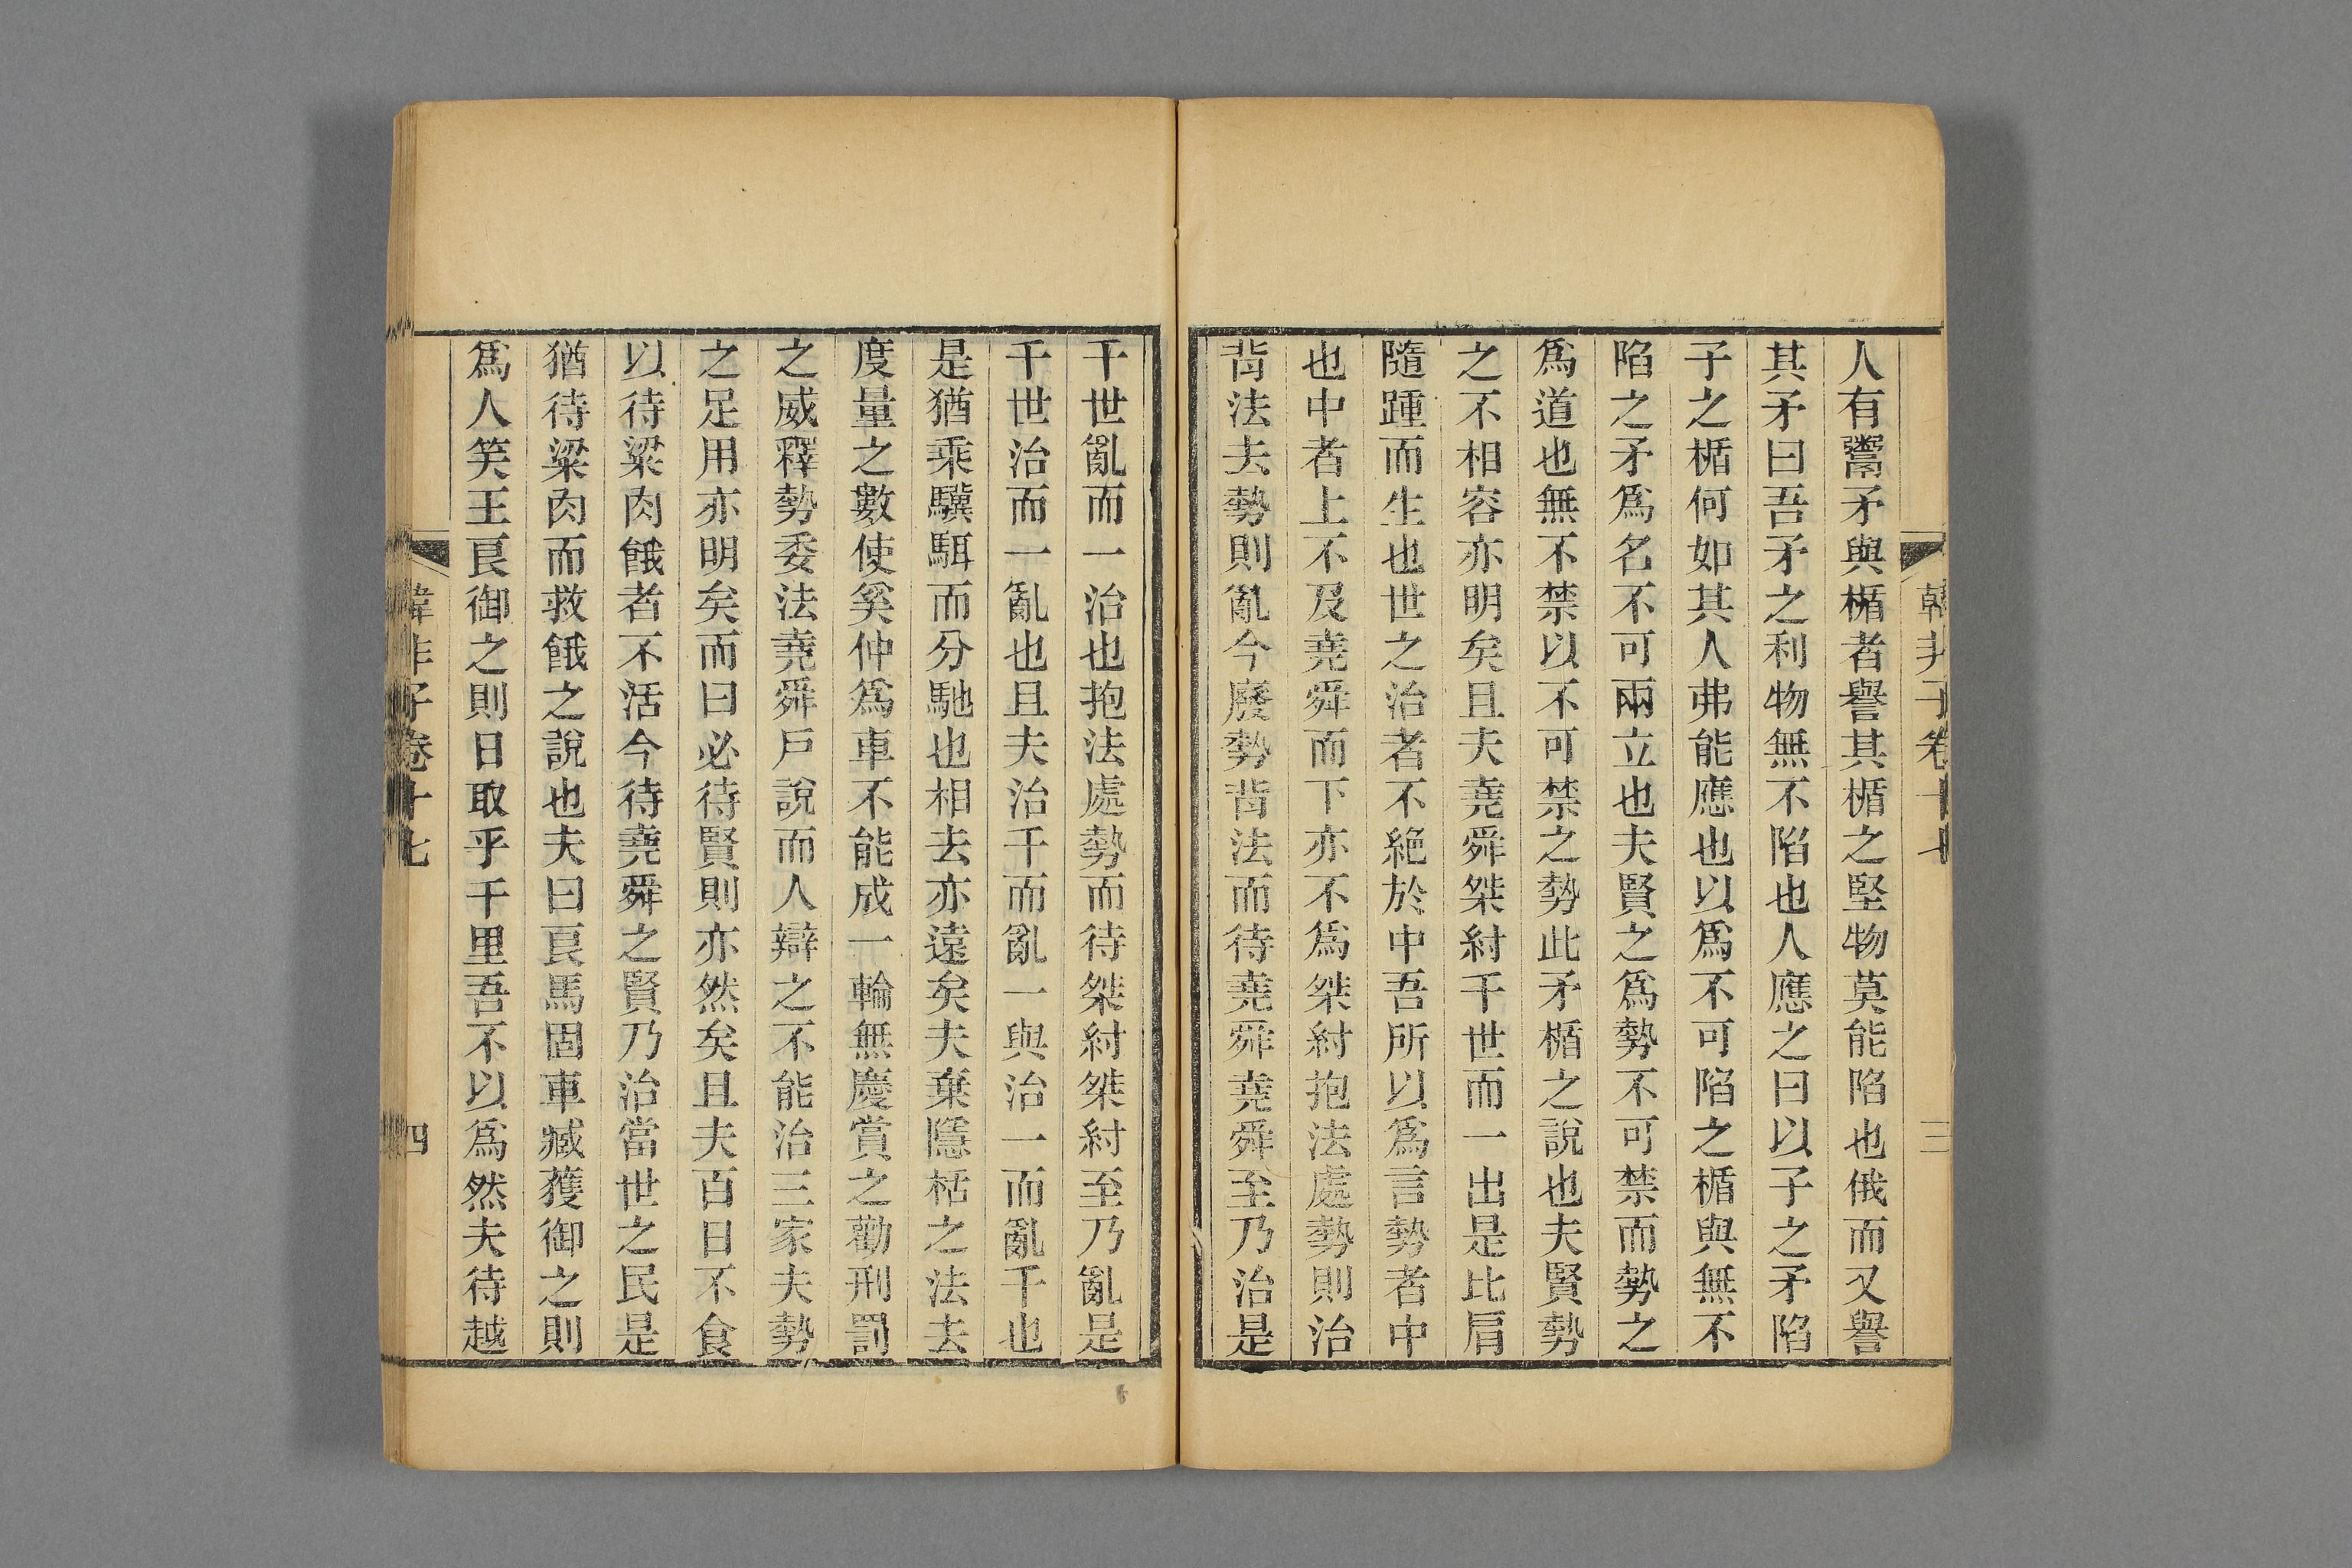 韓非子卷十七
三
人有鬻矛與楯者譽其楯之堅物莫能陷也俄而又譽
其矛曰吾矛之利物無不陷也人應之曰以子之矛陷
子之楯何如其人弗能應也以爲不可陷之楯與無不
陷之矛爲名不可兩立也夫賢之爲勢不可禁而勢之
爲道也無不禁以不可禁之勢此矛楯之說也夫賢勢
之不相容亦明矣且夫堯舜桀紂千世而一出是比肩
隨踵而生也世之治者不絕於中吾所以爲言勢者中
也中者上不及堯舜而下亦不爲桀紂抱法處勢則治
背法去勢則亂今廢勢背法而待堯舜堯舜至乃治是
千世亂而一治也抱法處勢而待桀紂桀紂至乃亂是
千世治而一亂也且夫治千而亂一與治一而亂千也
是猶乘驥駬而分馳也相去亦遠矣夫棄隱栝之法去
度量之數使奚仲爲車不能成一輪無慶賞之勸刑罰
之威釋勢委法堯舜戶說而人辯之不能治三家夫勢
之足用亦明矣而曰必待賢則亦然矣且夫百日不食
以待粱肉餓者不活今待堯舜之賢乃治當世之民是
猶待粱肉而救餓之說也夫曰良馬固車臧獲御之則
爲人笑王良御之則日取乎千里吾不以爲然夫待越
韓非子卷十七
四